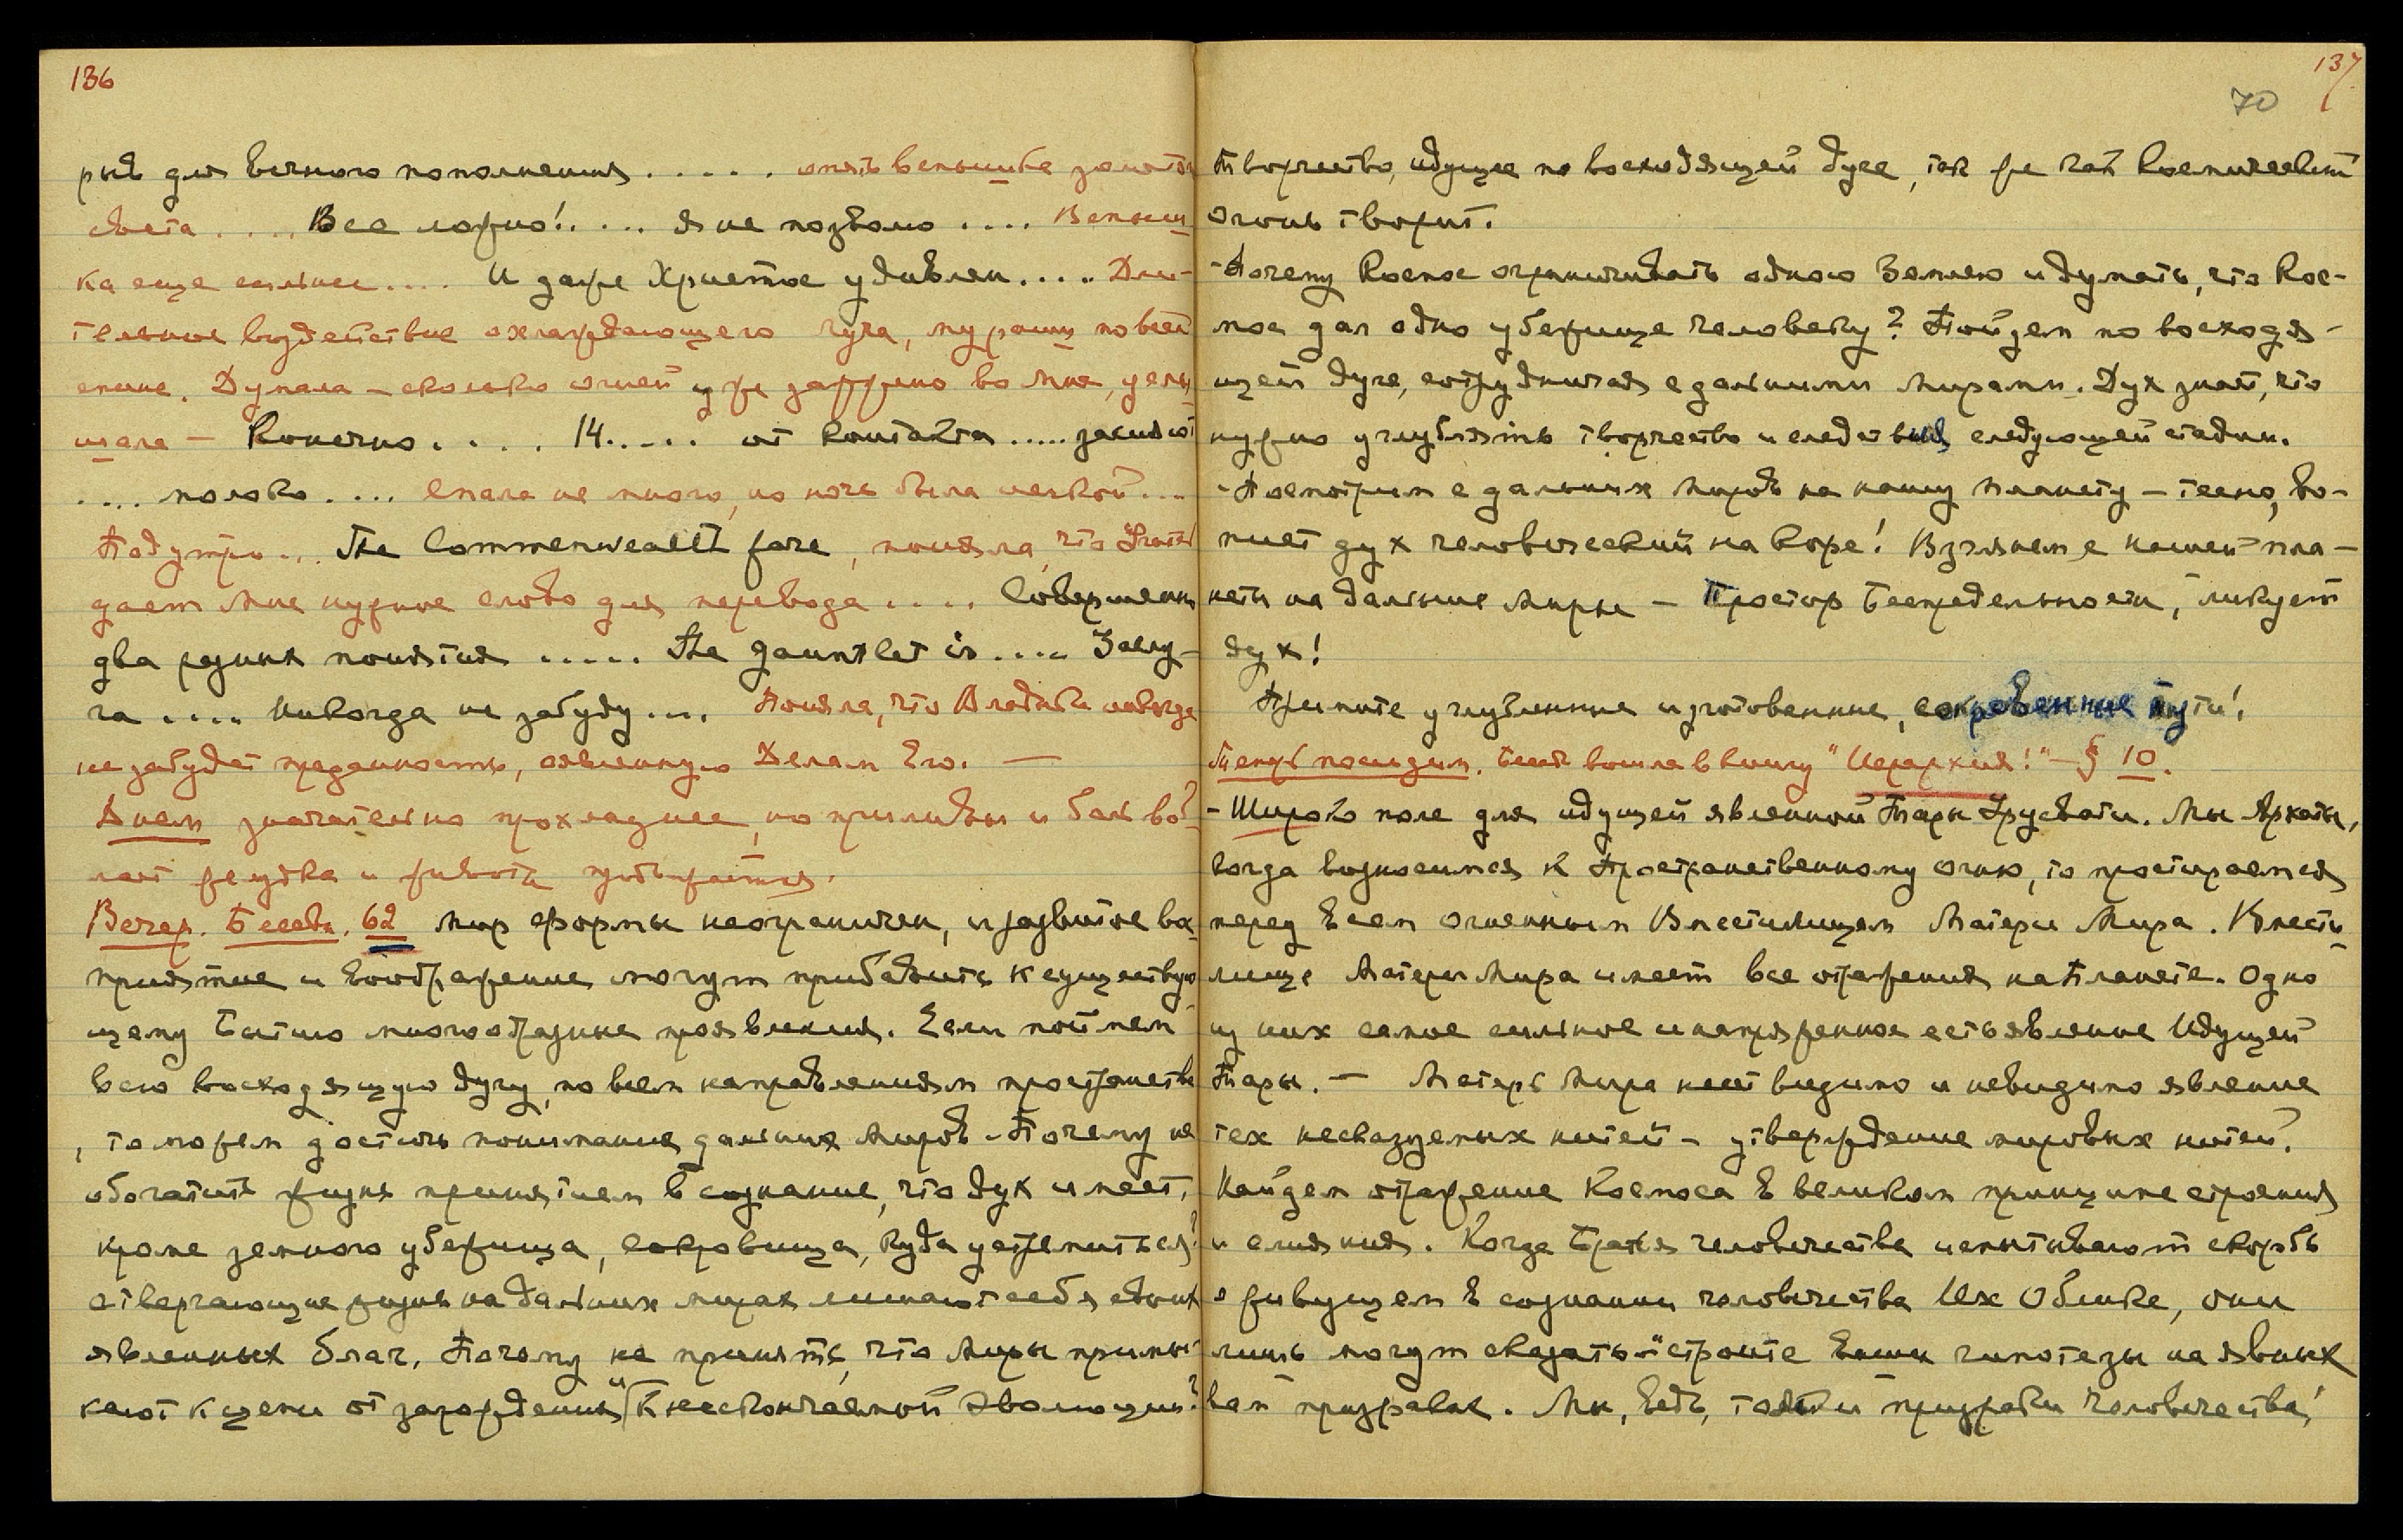 136
рыв для вечного пополнения . . . . . опять вспышка золотого
света . . . . Все ложно! . . . . я не позволю . . . . Вспыш-
ка еще сильнее . . . . И даже Христос удивлен . . . . Дли-
тельное воздействие охлаждающего луча, мурашки по всей
спине. Думала – сколько огней уже зажжено во мне, услы-
шала – Конечно . . . . 14 . . . . . от контакта . . . . .
. . . . молоко . . . . Спала не много, но ночь была легкой . . .
Под утро . . . The Commonwealth fare, поняла, что
дает мне нужное слово для перевода . . . . Совершенно
два разных понятия . . . . . The gauntlet is . . . . Заслу-
га . . . . никогда не забуду . . . . Поняла, что Владыка никогда
не забудет преданность, явленную Делам Его. —
Днем значительно прохладнее, но приливы и боль во-
лат желудка и живота продолжается.
Вечер. Беседа. 62 Мир формы неограничен, и развитое вос-
приятие и воображение могут прибавить к существую-
щему Бытию многообразные проявления. Если поймем
всю восходящую дугу, по всем направлениям пространства
, то можем достичь понимания дальних миров. Почему не
обогатить жизнь принятием в сознание, что дух имеет,
кроме земного убежища, сокровища, куда устремиться?
отвергающие жизнь на дальних мирах лишают себя своих
явленных благ. Почему не принять, что миры примы-
кают к цепи от зарождения к нескончаемой эволюции?
137
70
творчество, идущее по восходящей дуге, так же как Космический
огонь творит.
- Почему Космос ограничивать одною Землею и думать, что Кос-
мос дал одно убежище человеку? Пойдем по восходя-
щей дуге, сотрудничая с дальними мирами. Дух знает, что
нужно углублять творчество и следствия следующей стадии.
- Посмотрим с дальних миров на нашу планету – тесно, во-
пиет дух человеческий на коре! Взглянем с нашей пла-
неты на дальние миры – Простор Беспредельности, ликует
дух!
Примите углубленные изготовленные, сокровенные пути!
Теперь посидим. Беседа вошла в книгу "Иерархия!" – § 10.
- Широко поле для идущей явленной Тары Урусвати. Мы Архаты,
когда возносимся к Пространственному огню, то простираемся
перед Всем огненным Вместилищем Матери Мира. Вмести-
лище Матери Мира имеет все отражения на Планете. Одно
из них самое сильное и напряженное есть явление Идущей
Тары. — Матерь Мира несет видимо и невидимо явление
тех несказуемых нитей – утверждение мировых нитей.
Найдем отражение Космоса в великом принципе строения
и слияния. Когда Братья человечества испытывают скорбь
о живущем в сознании человечества Их Облике, они
лишь могут сказать: "стройте ваши гипотезы на явных
вам призраках. Мы, ведь, тоже призраки человечества!